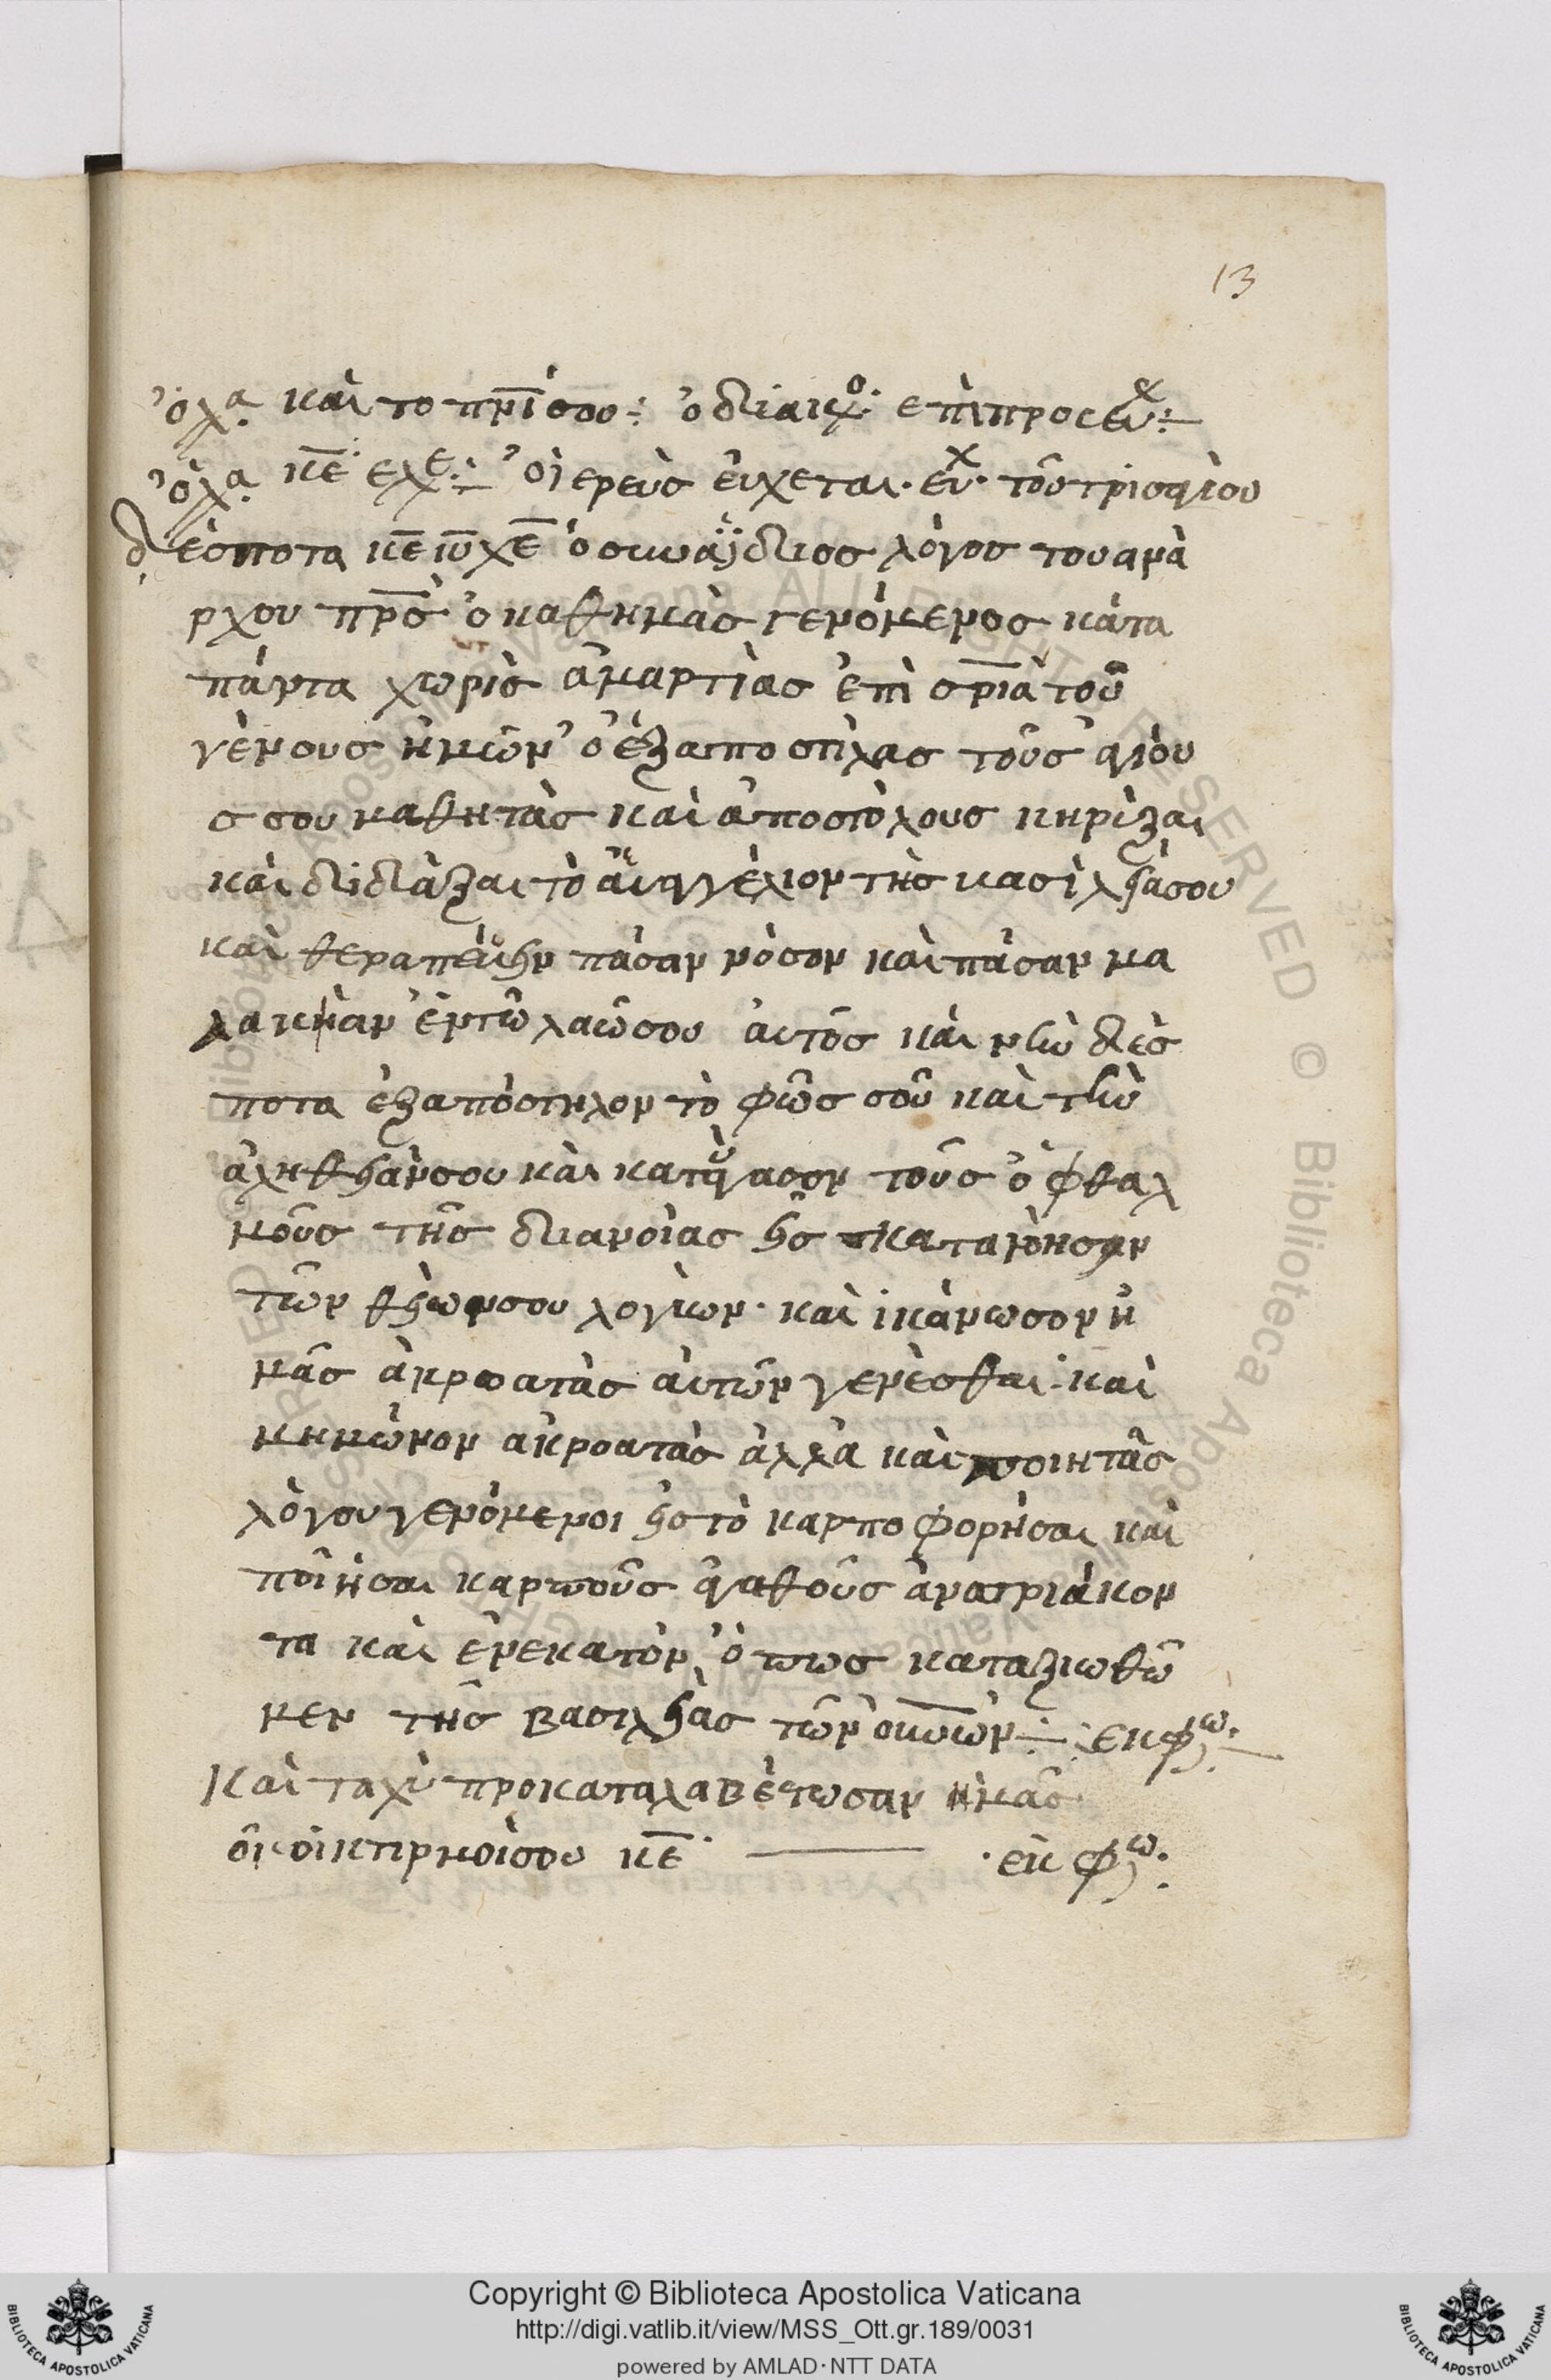 13
ὁ λα καὶ το πνῖ σου: ὁ διακο: επὶ προσευχ:
ὁ λα κε ελε: ὁ ἱερεὺς εὔχεται. ευχ. τοῦ τρισαγίου
δέσποτα κε ιυ χε ὁ συναΐδιος λόγος του ανὰ
ρχου πρς ὁ καθημὰς γενόμενος κάτα
πάντα χωρὶς ἁμαρτίας ἐπὶ σρια τοῦ
γένους ἡμῶν ὁ ἐξαποστίλας τοῦς αγίου
ς σου μαθητὰς καὶ ἀποστόλους κηρίξαι
καὶ διδιάξαι τὸ ἀυαγγέλιον τῆς κασιλείασου
καὶ θεραπέυειν πάσαν νόσον καὶ πάσαν μα
λακήαν ἐντῶ λαῶσου ἀυτὸς καὶ νῦν δέσ
ποτα ἐξαπόστηλον τὸ φῶς σοῦ καὶ τὴν
ἀληθειάνσου καὶ καταύγασον τοῦς ὀφθαλ
μοῦς τῆς διανοίας εἰς κατανόησιν
τῶν θείωνσου λογίων. καὶ ἱκάνωσον ἡ
μᾶς ἀκροατὰς ἀυτῶν γενέσθαι. καὶ
μημώνον ακροατὰς ἀλλὰ καὶ ποιητὰς
λόγου γενόμενοι εἰς τὸ καρποφορήσαι καὶ
ποιήσαι καρποῦς ἀγαθοῦς ἀνατριάκον
τα καὶ ἐνεκατὸν ὅπως καταξιωθῶ
μεν τῆς βασιλείας τῶν ουνων: εκφω:
Καὶ ταχὺ προκαταλαβέτωσαν ἡμᾶς
οἱ οἰκτιρμοίσου κε. εκφω:
Copyright © Biblioteca Apostolica Vaticana
http://digi.vatlib.it/view/MSS_Ott.gr.189/0031
powered by AMLAD·NTT DATA
BIBLIOTECA APOSTOLICA VATICANA
BIBLIOTECA APOSTOLICA VATICANA